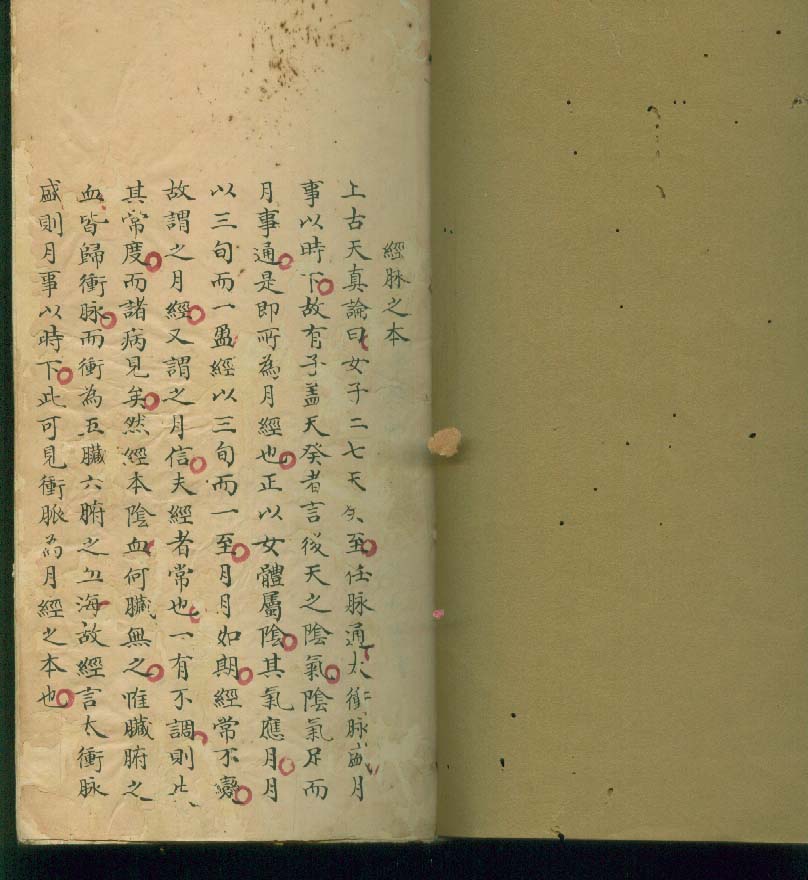 經脉之本
上古天真論曰女子二七天癸至任脉通太衝脉盛月
事以時下故有子蓋天癸者言後天之陰氣陰氣足而
月事通是即所為月經也正以女體屬陰其氣應月月
以三旬而一盈經以三旬而一至月月如期經常不變
故謂之月經又謂之月信夫經者常也一有不調則失
其常度而諸病見矣然經本陰血何臟無之惟臟腑之
血皆歸衝脉而衝為五臟六腑之血海故經言太衝脉
盛則月事以時下此可見衝脈為月經之本也